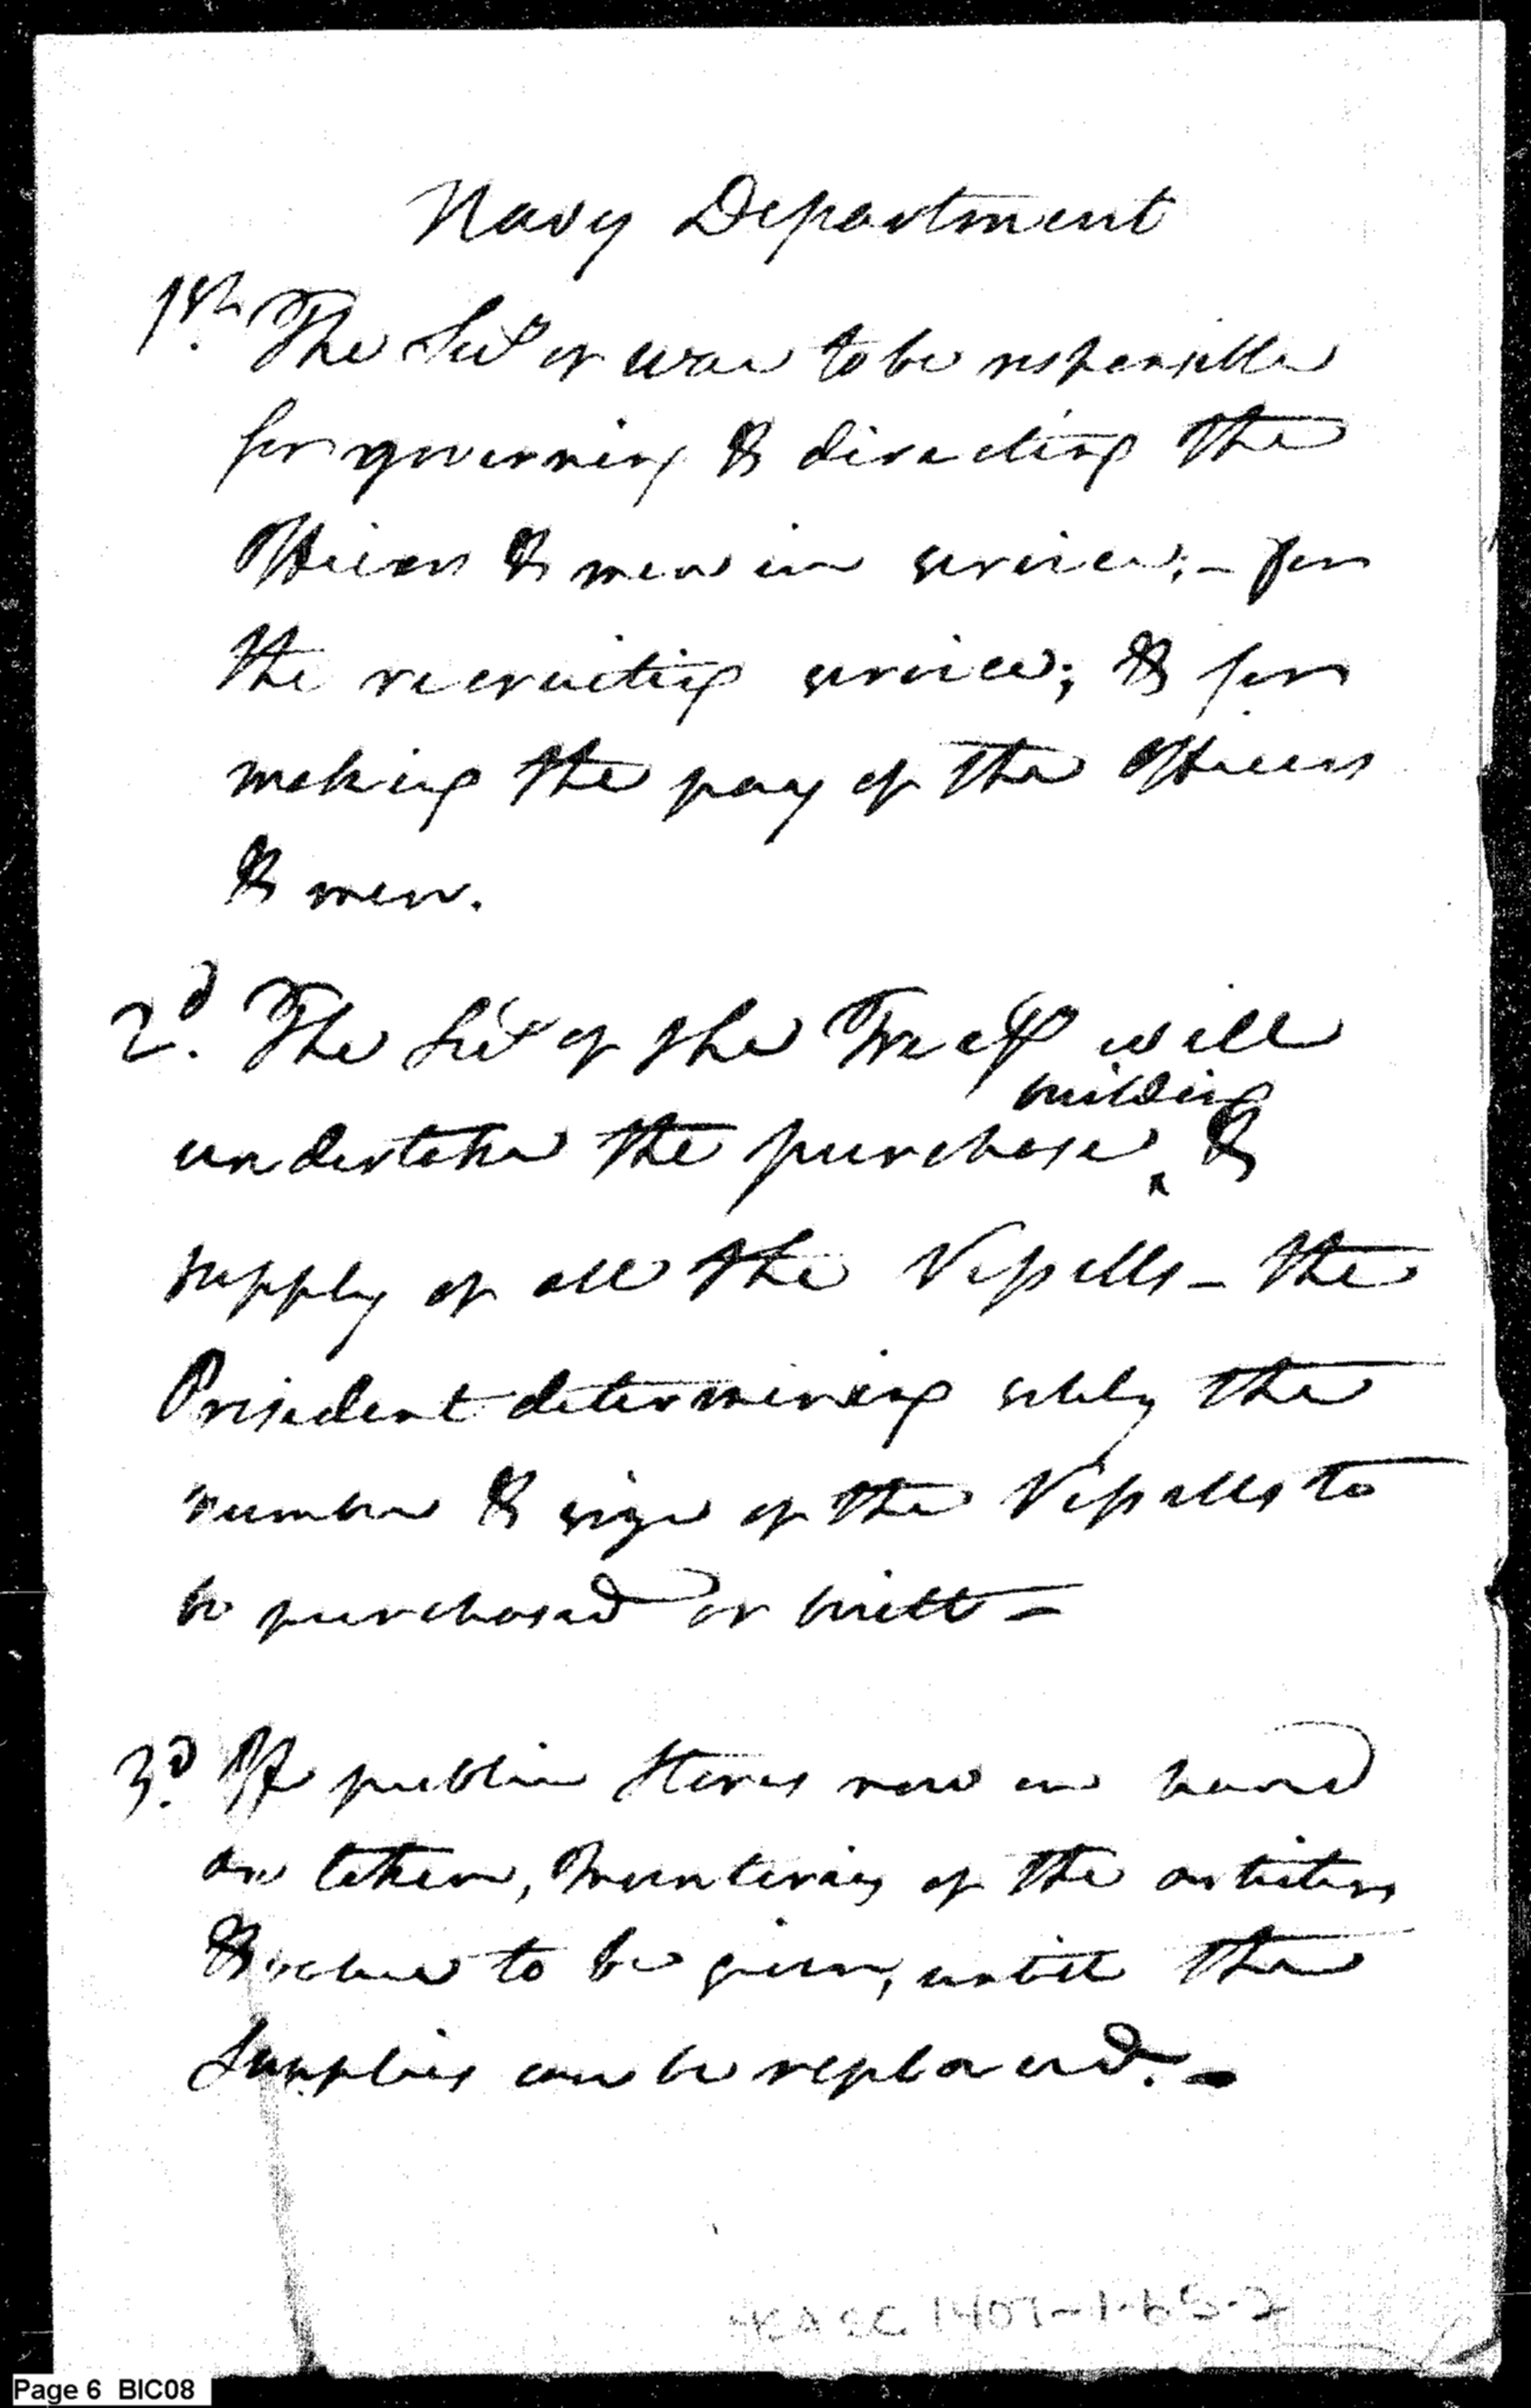 Navy Department
1st. The Secy of War to be responsible
for governing & directing the
Officers & men in service; – for
the recruiting service; & for
making the pay of the Officers
& men.
2d. The Secy of the Treasy will
building
undertake the purchase ‸ &
supply of all the Vessells – the
President determining solely the
number & size of the Vessells to
be purchased or built –
3d. If public stores now on hand
are taken, Inventories of the articles
& value to be given, until the
Supplies can be replaced. –
RASC 1407-1-65-2
Page 6 BIC08